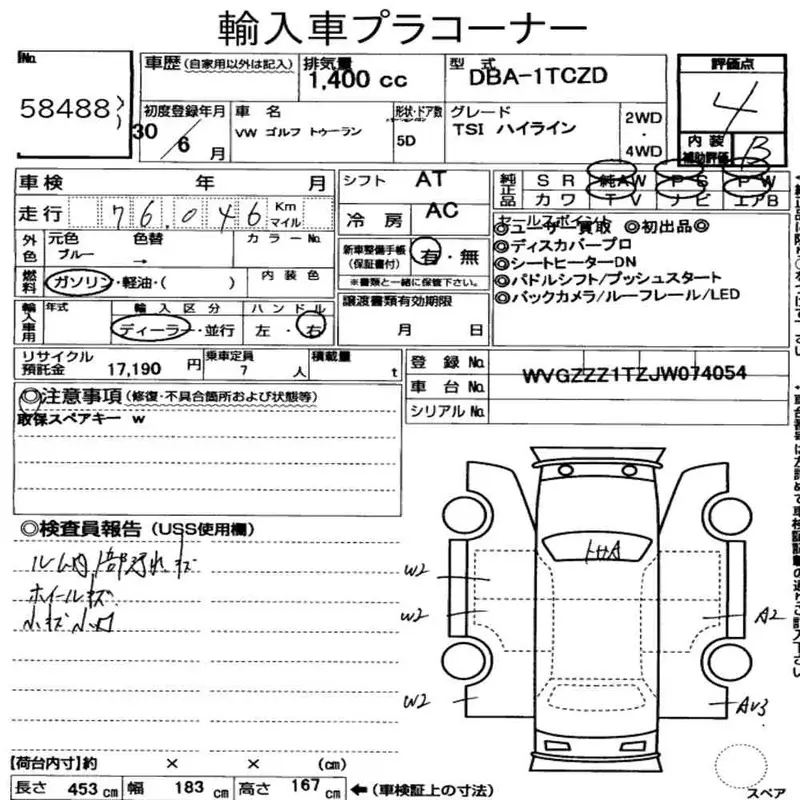 輸入車プラコーナー
No. 58488
車歴 (自家用以外は記入)
排気量 1,400 cc
型式 DBA-1TCZD
評価点 4
初度登録年月 30/6月
車名 VW ゴルフ トゥーラン
形状・ドア数 5D
グレード TSI ハイライン
2WD・4WD
内装補助評価 B
車検 年 月
シフト AT
純正品 SR 純AW PS PW
カワ TV ナビ エアB
走行 76,046 Km マイル
冷房 AC
外色 元色 ブルー 色替 → カラーNo.
新車整備手帳 (保証書付) 有・無
※書類と一緒に保管下さい。
セールスポイント
◎ユーザー買取 ◎初出品◎
◎ディスカバープロ
◎シートヒーターDN
◎パドルシフト/プッシュスタート
◎バックカメラ/ルーフレール/LED
燃料 ガソリン・軽油・( ) 内装色
輸入車用 年式 輸入区分 ディーラー・並行 ハンドル 左・右
譲渡書類有効期限 月 日
リサイクル預託金 17,190 円
乗車定員 7 人
積載量 t
登録No.
車台No. WVGZZZ1TZJW074054
シリアルNo.
◎注意事項 (修復・不具合箇所および状態等)
取保スペアキー w
◎検査員報告 (USS使用欄)
ルーム内1部汚れキズ
ホイールキズ
小キズ小凹
W2
W2
A2
W2
AW3
【荷台内寸】約 × × (cm)
長さ 453 cm 幅 183 cm 高さ 167 cm ←(車検証上の寸法)
スペア